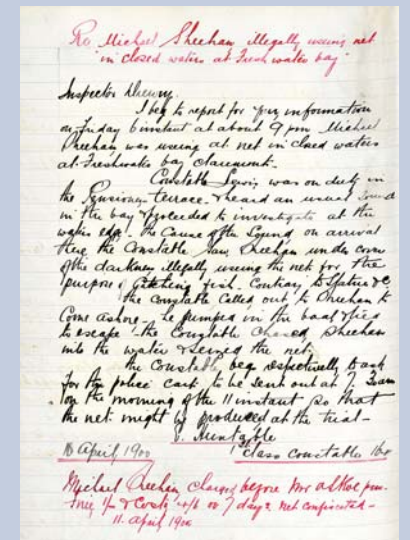 Re Michael Sheehan illegally using net
in closed waters at Fresh water bay
Inspector Drewry.
I beg to report for your information
on Friday 6 instant at about 9 pm Michael
Sheehan was using at net in closed waters
at Freshwater bay Claremont.
Constable Lewis was on duty in
the Pensioner Terrace & heard an usual Sound
in the bay & proceeded to investigate at the
waters edge. the Cause of the Sound, on arrival
there the Constable saw, Sheehan under cover
of the darkness illegally using the net for the
purpose of Catching fish. Contrary to Statue &c
the Constable Called out to Sheehan to
Come ashore – he jumped in the boat & tied
to escape – the Constable Chased Sheehan
into the water & seized the net.
the Constable begs respectively to ask
for the police cart to be sent out at 7.
on the morning of the 11 instant so that
the net might be produced at the trial –
10 April 1900
1 Class constable
Michael Sheehan charged before Mr
fine 1/- & Costs or 7 days. net confiscated –
11. April 1900